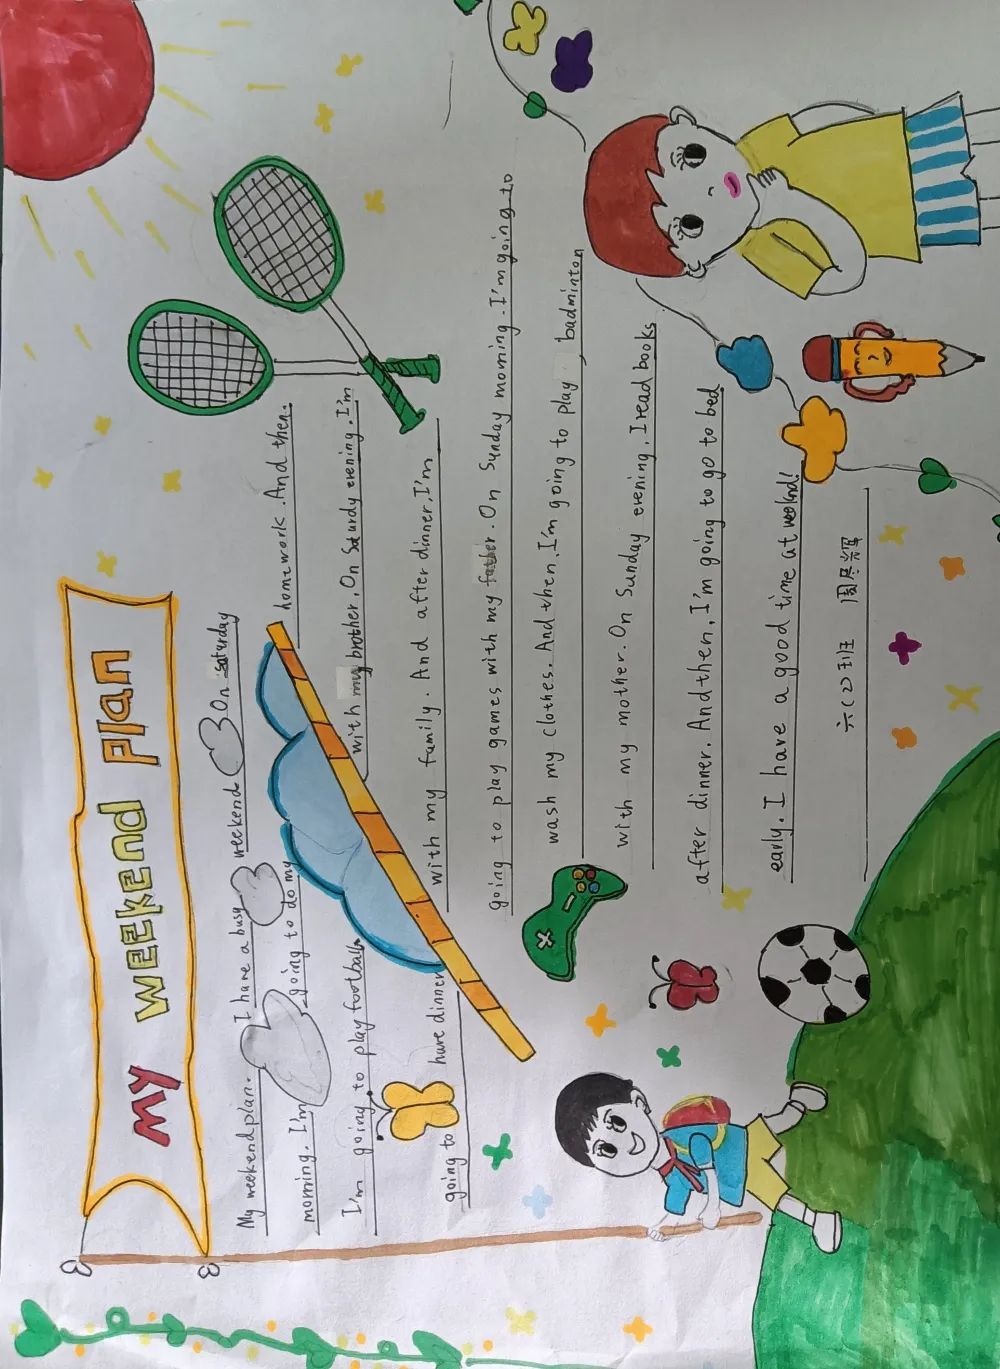 My weekend plan
My weekend plan. I have a busy weekend On saturday
morning. I'm going to do my homework. And then.
I'm going to play football with my brother. On Saturdy evening. I'm
going to have dinner with my family. And after dinner. I'm
going to play games with my father. On Sunday morning. I'm going to
wash my clothes. And then. I'm going to play badminton
with my mother. On Sunday evening. I read books
after dinner. And then. I'm going to go to bed
early. I have a good time at weekend.
六(2)班 周辉